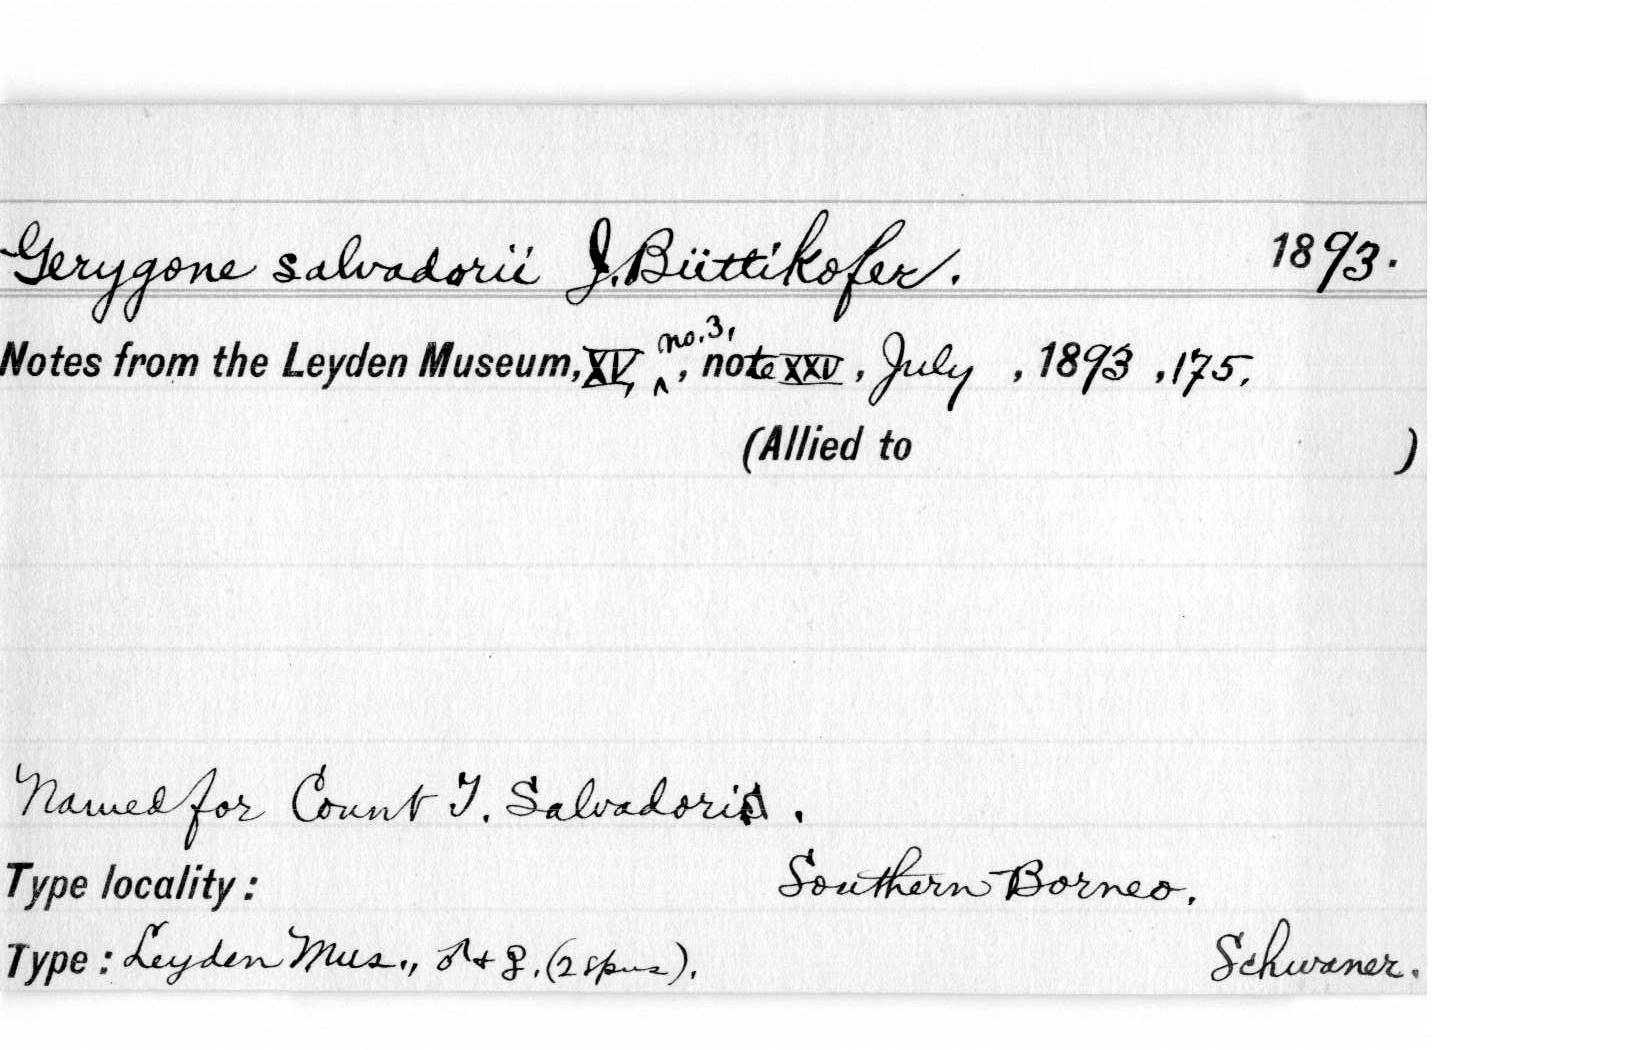 Gerygone salvadorii J. Büttikofer. 1893.
Notes from the Leyden Museum, XV, no. 3, , note XXV, July , 1893 , 175.
(Allied to )
Named for Count T. Salvadori.
Type locality: Southern Borneo.
Type: Leyden Mus., ♂ + ♀. (2 spms). Schwaner.